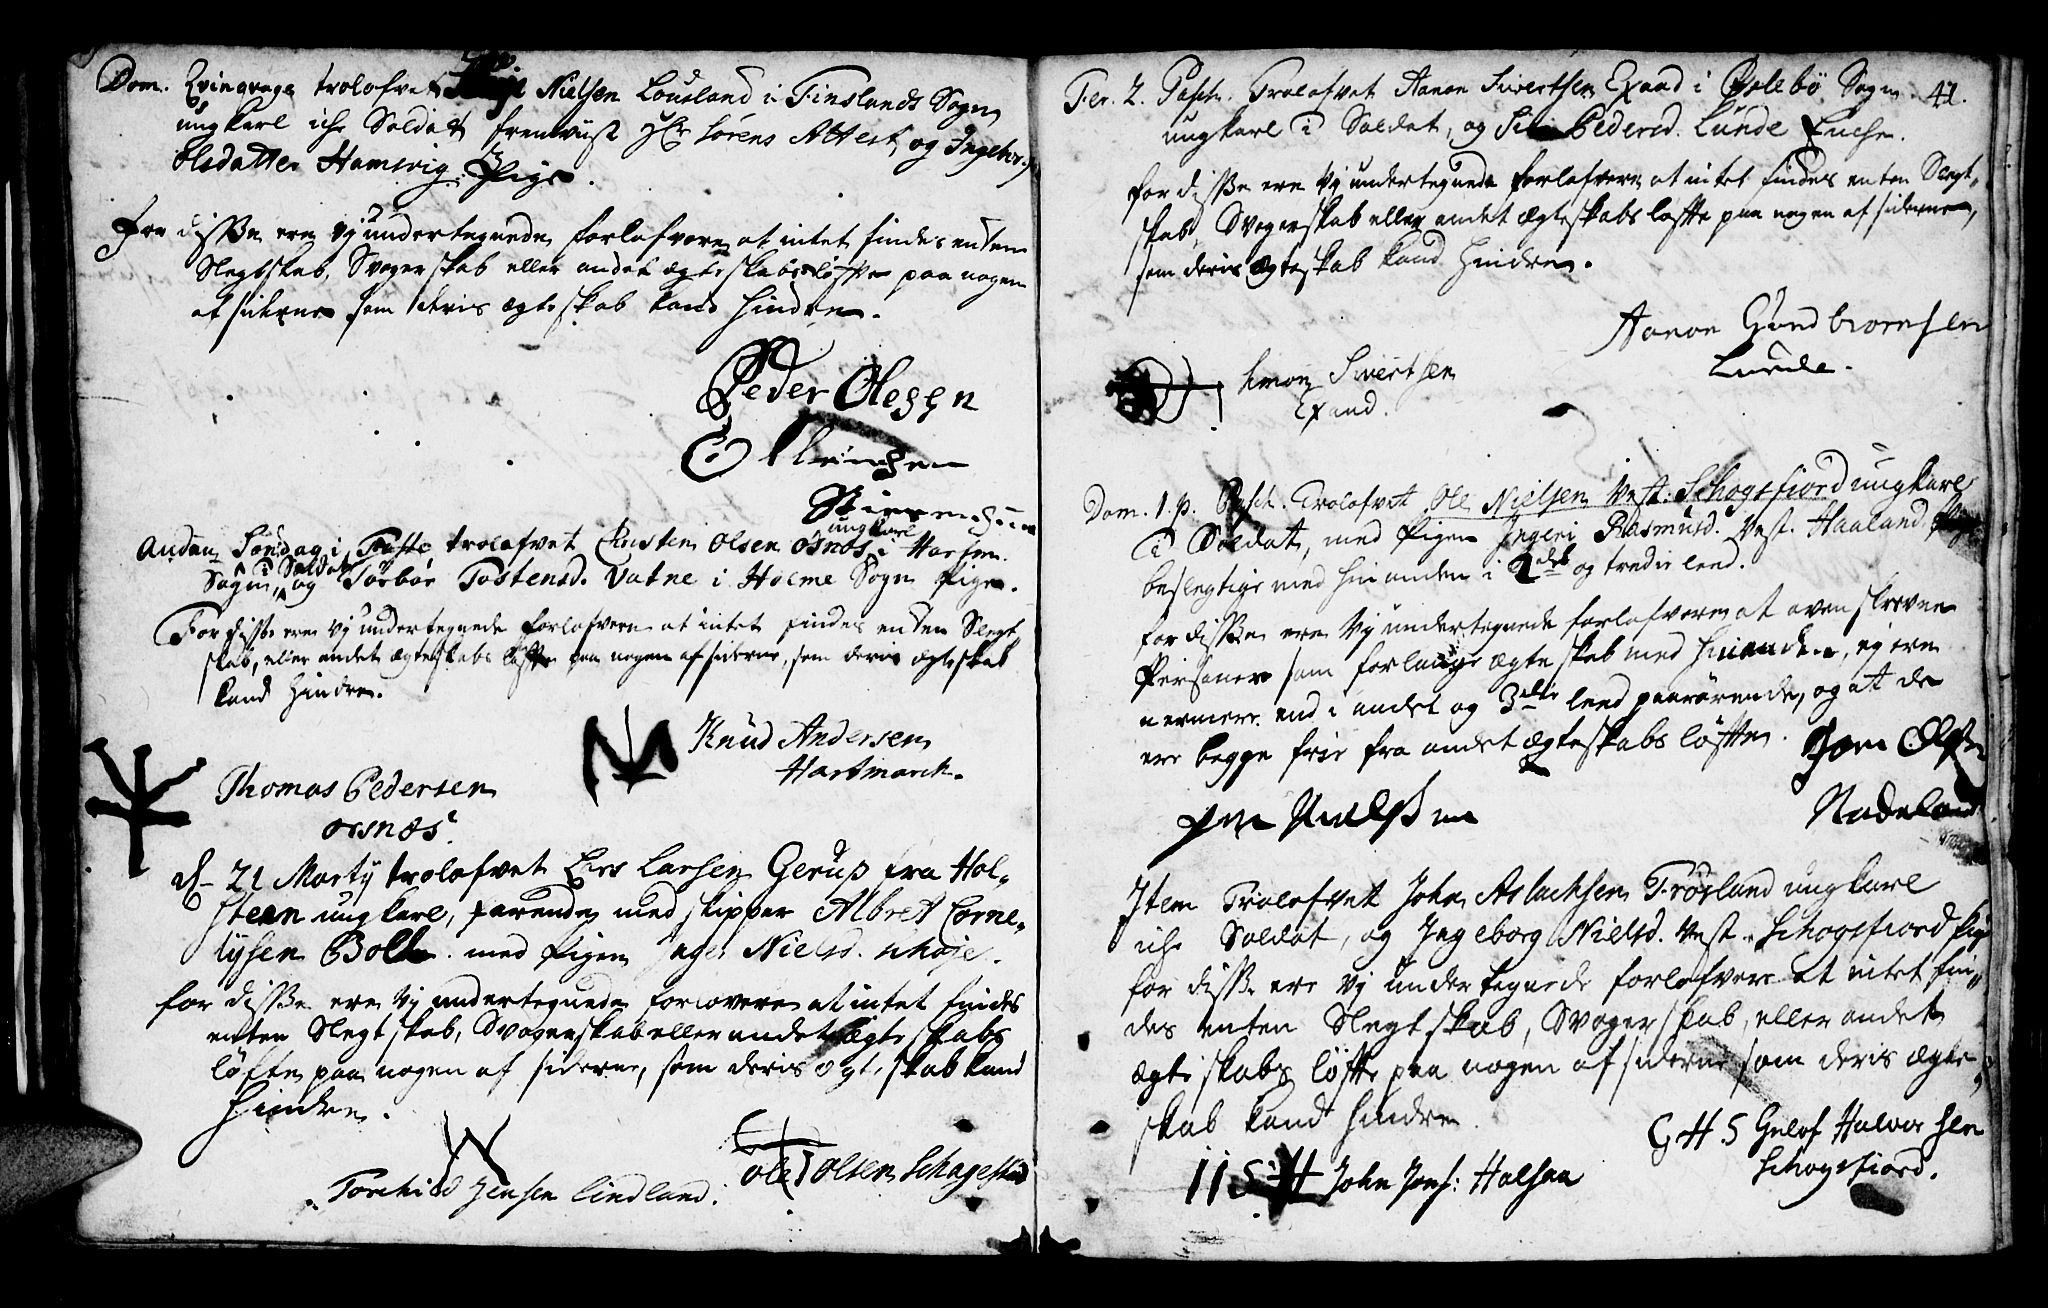 Dom. Qvinqvage trolofvet Nielsen Lousland i Finslands Sogn
ungkarl iche Soldat fremviist Hr Sörens Attest og Ingebor
Olsdatter Hamsvig Pige.
For disse ere vj undertegnede forlofvere at intet findes enten
Slegtskab, Svogerskab eller andet ægteskabs löfte paa nogen
af siderne som deris ægteskab kand hindre.
Peder Olessen
Anden Söndag i Faste trolofvet Christen Olsen Osnos ungkarl i Hartm.
Sogn, i Soldat og Torbör Tostensd. Vatne i Holme Sogn Pige.
For disse ere vj undertegnede forlofvere at intet findes enten Slegt
skab, eller andet ægteskabs löfte paa nogen af siderne, som deris ægteskab
kand hindre.
Knud Andersen
Hartmarck.
Thomas Pedersen
Osnæs
d. 21 Martij trolofvet Lars Larsen Gerup fra Hol-
steen ungkarl, farende med skipper Albret Corne-
lijsen Bolt. med Pigen Inger Nielsd.
for disse ere vj undertegnede forlovere at intet findes
enten Slegtskab, Svogerskab eller andet ægteskabs
löfte paa nogen af siderne, som deris ægteskab kand
hindre.
Torchild Jensen Lindland.
Ole Olsen Schagestad
41.
Fer. 2. Pasch. Trolofvet Aanon Sivertsen Exand i Oslebö Sogn
ungkarl i Soldat, og Pedersd. Lunde Enche.
for disse ere vj undertegnede forlofvere at intet findes enten Slegt-
skab, Svogerskab eller andet ægteskabs löfte paa nogen af siderne,
som deris ægteskab kand hindre.
Aanon Gundbiornsen
Lunde.
Simon Sivertsen
Exand.
Dom. 1. p. Pasch. Trolofvet Ole Nielsen Vest. Schogsfiord ungkarl
i Soldat, med Pigen Ingeri Rasmusd. Vest. Haaland
beslegtige med hinanden i 2det og tredie leed.
for disse ere vj undertegnede forlofvere at oven skrevne
Personer som forlange ægteskab med hinanden, ej ere
nermere end i andet og 3die leed paarörende, og at de
ere begge frie fra andet ægteskabs löfte.
Olsen
Item Trolofvet John Aslachsen Fröisland ungkarl
iche Soldat, og Ingeborg Nielsd. Vest. Schogsfiord Pige
for disse ere vj undertegnede forlofvere at intet fin-
des enten Slegtskab, Svogerskab, eller andet
ægteskabs löfte paa nogen af siderne som deris ægte-
skab kand hindre.
G H S Gulof Halvorsen
Schogsfiord.
John Jens: Halsaa